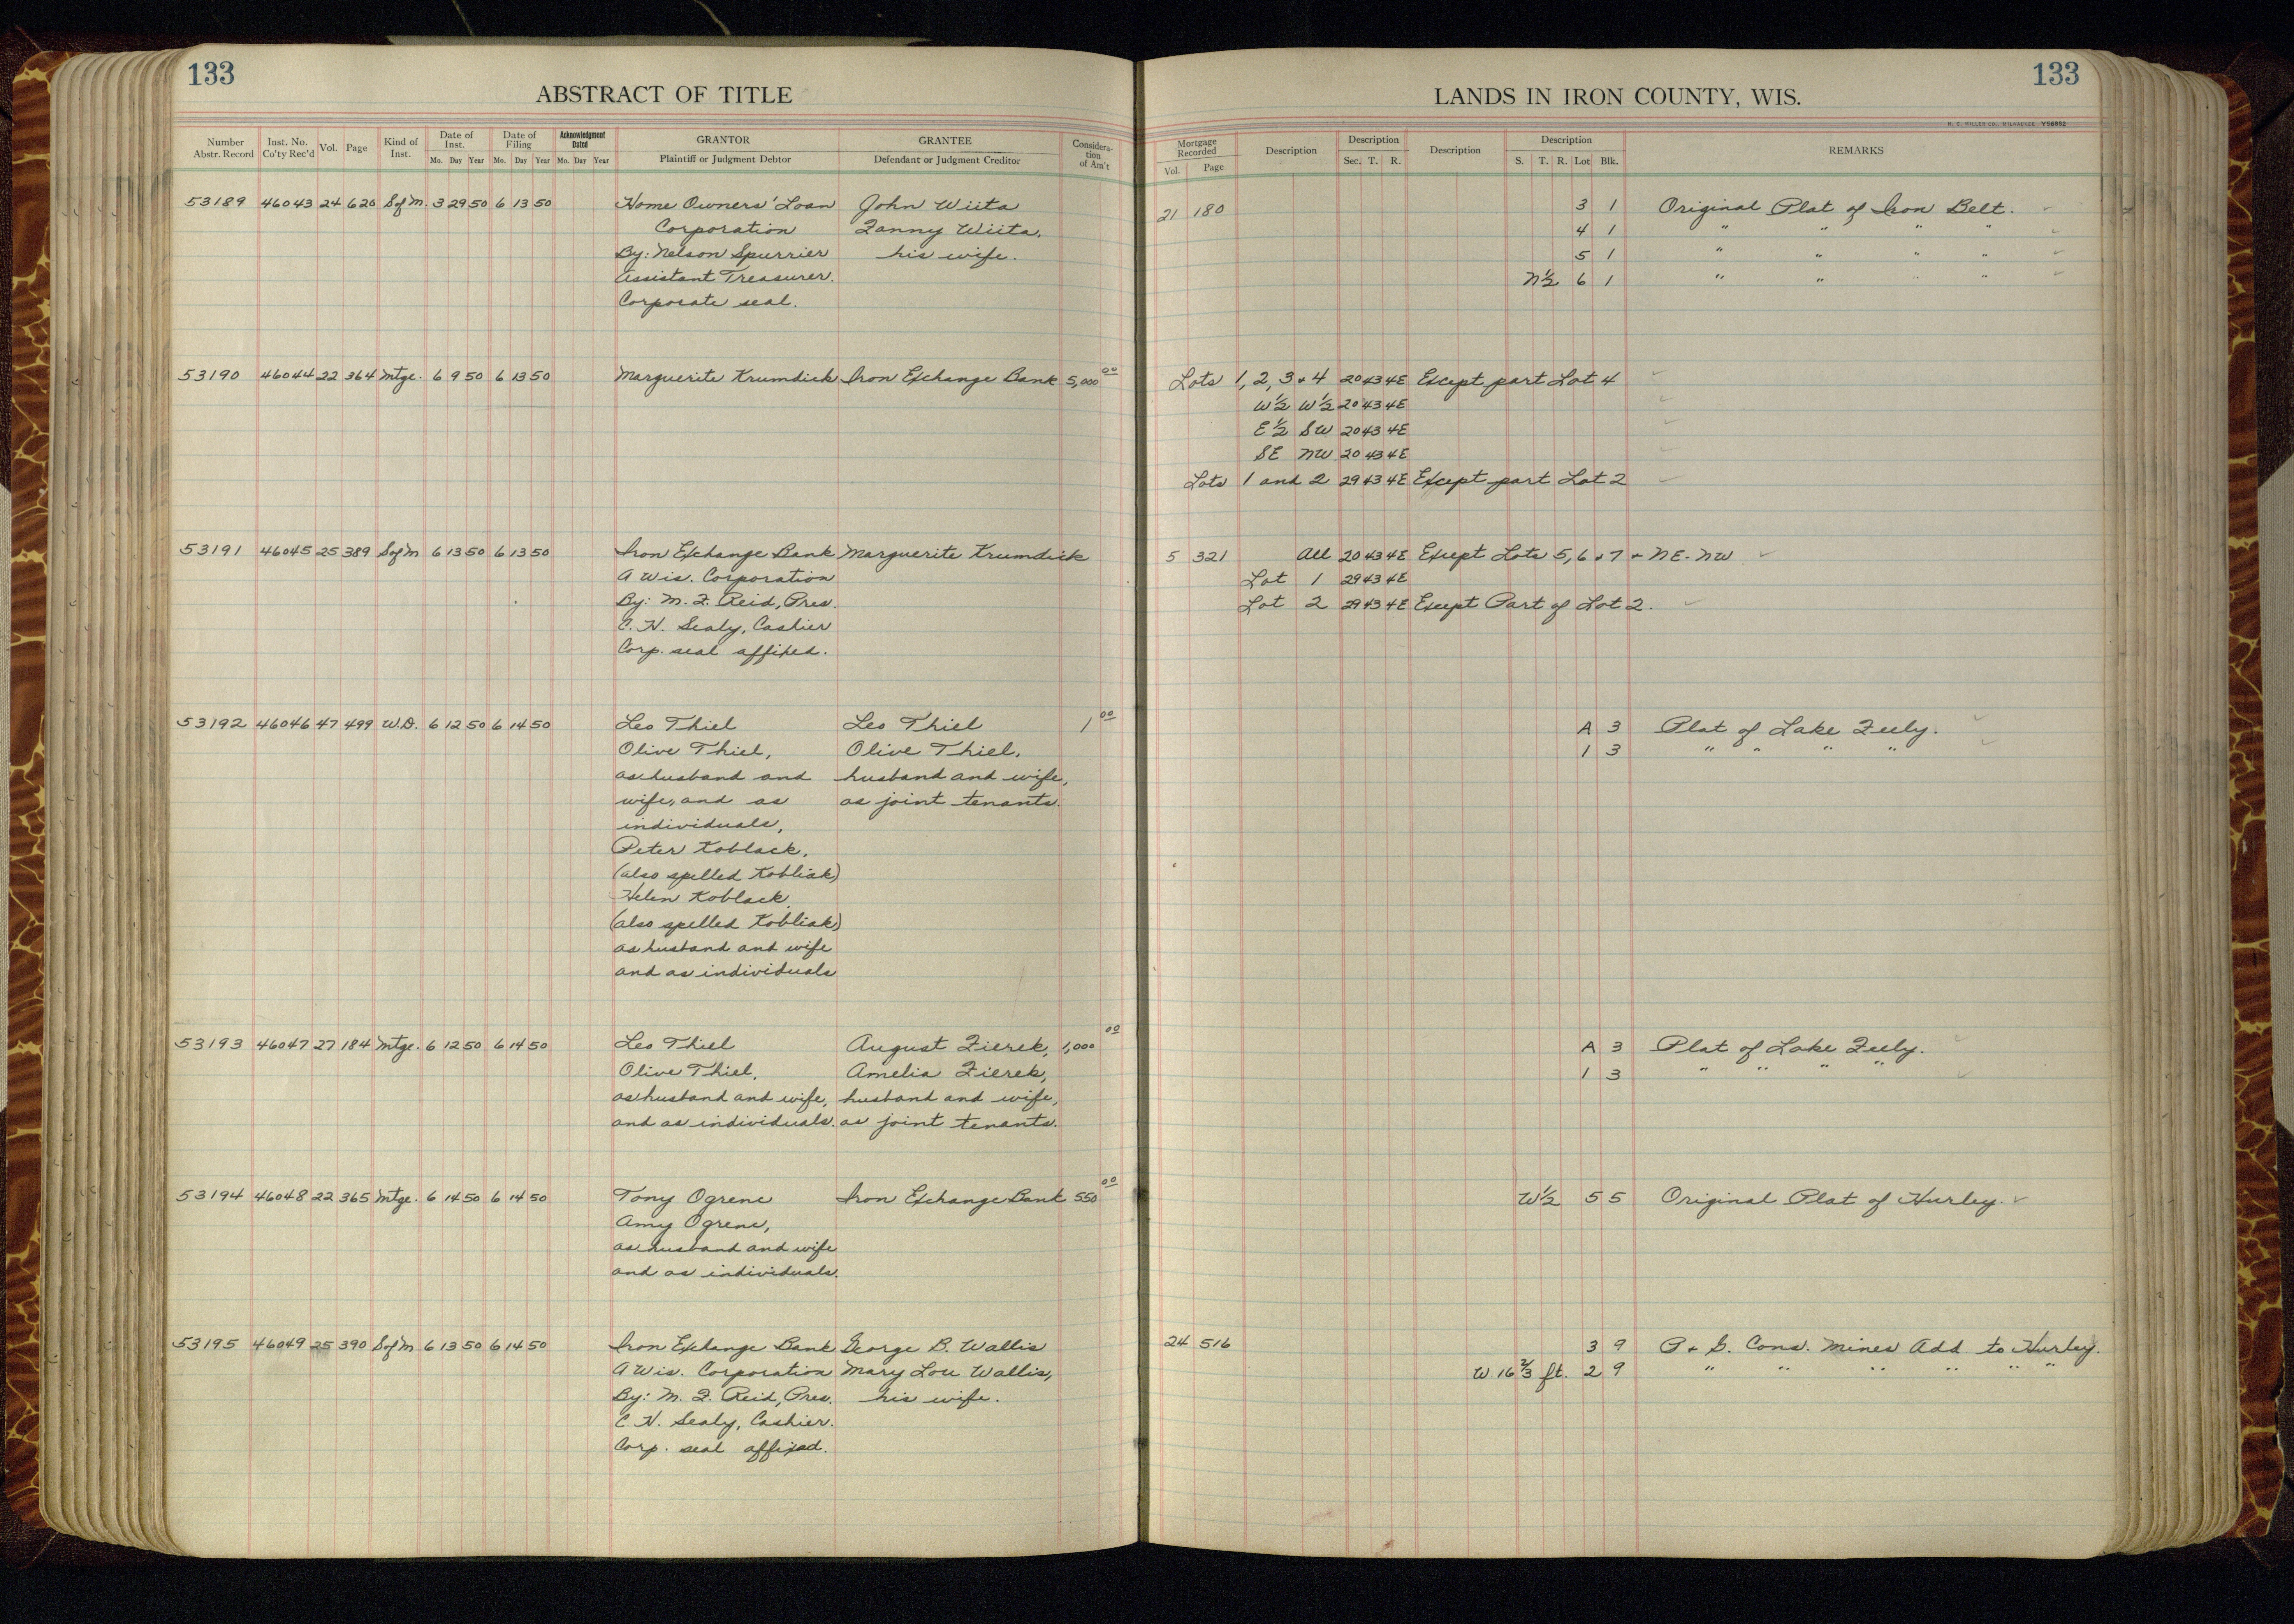 133
ABSTRACT OF TITLE
Number Abstr. Record | Inst. No. Co'ty Rec'd | Vol. | Page | Kind of Inst. | Date of Inst. Mo. Day Year | Date of Filing Mo. Day Year | Acknowledgment Dated Mo. Day Year | GRANTOR Plaintiff or Judgment Debtor | GRANTEE Defendant or Judgment Creditor | Consideration of Am't
53189 46043 24 620 S of M. 3 29 50 6 13 50 Home Owners' Loan John Wiita
Corporation Fanny Wiita,
By: Nelson Spurrier his wife.
Assistant Treasurer.
Corporate seal.
53190 46044 22 364 Mtge. 6 9 50 6 13 50 Marguerite Krumdick Iron Exchange Bank 5,000 00
53191 46045 25 389 S of M 6 13 50 6 13 50 Iron Exchange Bank Marguerite Krumdick
A Wis. Corporation
By: M. F. Reid, Pres.
C. H. Sealy, Cashier
Corp. seal affixed.
53192 46046 47 499 W.D. 6 12 50 6 14 50 Leo Thiel Leo Thiel 1 00
Olive Thiel, Olive Thiel,
as husband and husband and wife,
wife, and as as joint tenants.
individuals,
Peter Koblack,
(also spelled Kobliak)
Helen Koblack
(also spelled Kobliak)
as husband and wife
and as individuals
53193 46047 27 184 Mtge. 6 12 50 6 14 50 Leo Thiel August Zierek, 1,000 00
Olive Thiel, Amelia Zierek,
as husband and wife, husband and wife,
and as individuals. as joint tenants.
53194 46048 22 365 Mtge. 6 14 50 6 14 50 Tony Ogrene Iron Exchange Bank 550 00
Amy Ogrene,
as husband and wife
and as individuals.
53195 46049 25 390 S of M 6 13 50 6 14 50 Iron Exchange Bank George B. Wallis
A Wis. Corporation Mary Lou Wallis,
By: M. F. Reid, Pres. his wife.
C. H. Sealy, Cashier.
Corp. seal affixed.
133
LANDS IN IRON COUNTY, WIS.
H. C. MILLER CO., MILWAUKEE Y56882
Mortgage Recorded Vol. Page | Description | Description Sec. T. R. | Description | Description S. T. R. Lot Blk. | REMARKS
21 180 3 1 Original Plat of Iron Belt.
4 1 " " " "
5 1 " " " "
N½ 6 1 " " " "
Lots 1, 2, 3 + 4 20 43 4E Except part Lot 4
W½ W½ 20 43 4E
E½ SW 20 43 4E
SE NW 20 43 4E
Lots 1 and 2 29 43 4E Except part Lot 2
5 321 All 20 43 4E Except Lots 5, 6 + 7 + NE-NW
Lot 1 29 43 4E
Lot 2 29 43 4E Except Part of Lot 2.
A 3 Plat of Lake Feely.
1 3 " " " "
A 3 Plat of Lake Feely.
1 3 " " " "
W½ 5 5 Original Plat of Hurley.
24 516 3 9 P + G. Cons. Mines Add to Hurley.
W 16⅔ ft. 2 9 " " " " " "